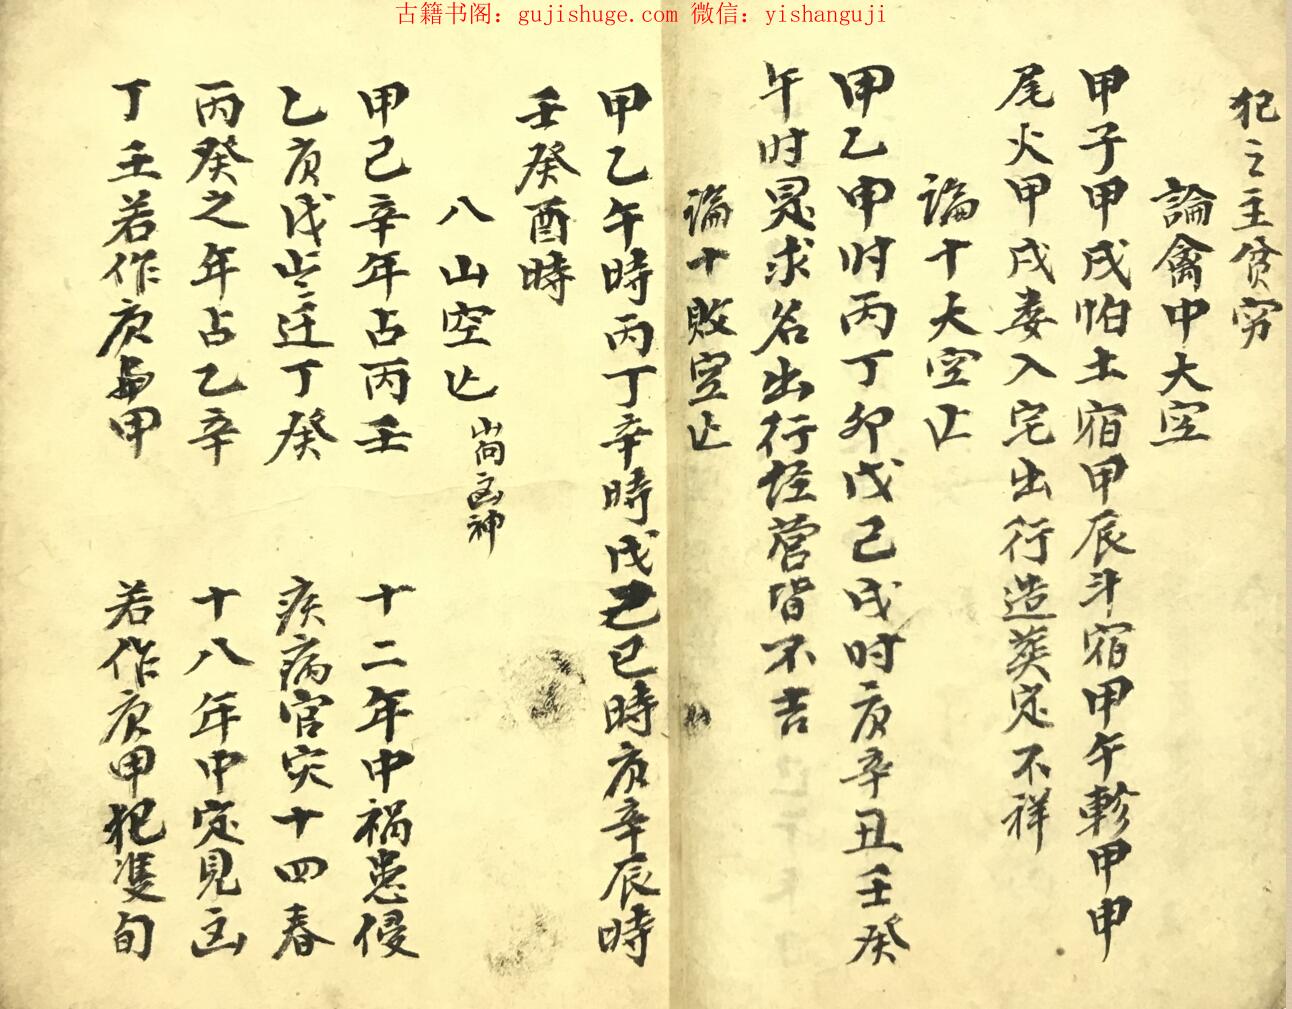 古籍书阁：gujishuge.com 微信：yishanguji
犯之主贫穷
論禽中大空
甲子甲戌怕土宿甲辰斗宿甲午軫甲申
尾火甲戌娄入宅出行造葬定不祥
論十大空亡
甲乙申时丙丁卯戊己戌时庚辛丑壬癸
午时是求名出行经营皆不吉
論十敗空亡
甲乙午時丙丁辛時戊己巳時庚辛辰時
壬癸酉時
八山空亡 山向凶神
甲己辛年占丙壬 十二年中禍患侵
乙庚戊年迁丁癸 疾病官灾十四春
丙癸之年占乙辛 十八年中定見凶
丁壬若作庚甲 若作庚甲犯隻旬